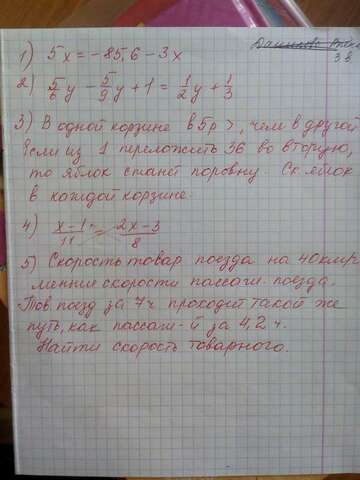 1) 5x = -85,6 - 3x
2) 5/6 y - 5/9 y + 1 = 1/2 y + 1/3
3) В одной корзине в 5р >, чем в другой
Если из 1 переложить 36 во вторую,
то яблок станет поровну. Ск. яблок
в каждой корзине.
4) x-1/11 = 2x-3/8
5) Скорость товар поезда на 40км/р
меньше скорости пассаги- поезда.
Тов. поезд за 7ч проходит такой же
путь, как пассаги-й за 4,2 ч.
Найти скорость товарного.